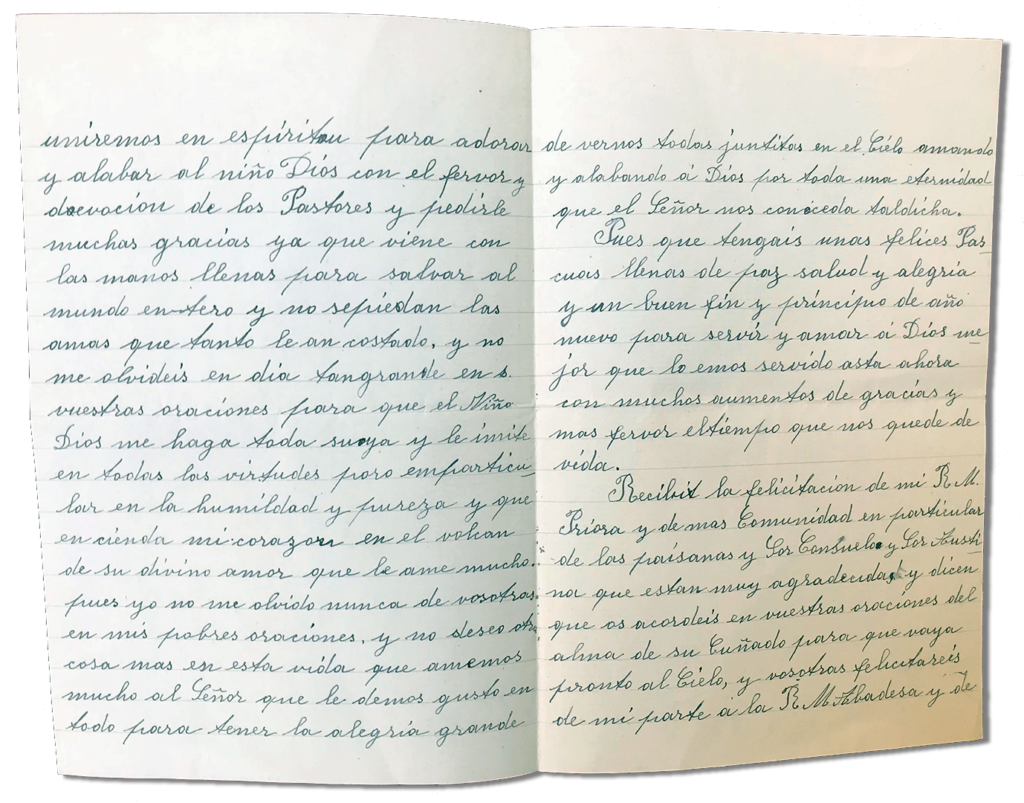 uniremos en espiritu para adorar
y alabar al niño Dios con el fervor y
devocion de los Pastores y pedirle
muchas gracias ya que viene con
las manos llenas para salvar al
mundo entero y no sepiedan las
amas que tanto le an costado, y no
me olvideis en dia tangrande en s.
vuestras oraciones para que el Niño
Dios me haga toda suya y le imite
en todas las virtudes pero emparticu-
lar en la humildad y pureza y que
encienda mi corazon en el volcan
de su divino amor que le ame mucho.
pues yo no me olvido nunca de vosotras
en mis pobres oraciones, y no deseo otra
cosa mas en esta vida que amemos
mucho al Señor que le demos gusto en
todo para tener la alegria grande
de vernos todas juntitas en el Cielo amando
y alabando á Dios por toda una eternidad
que el Señor nos conceda taldicha.
Pues que tengais unas felices Pas
cuas llenas de paz salud y alegria
y un buen fin y principio de año
nuevo para servir y amar á Dios me-
jor que lo emos servido asta ahora
con muchos aumentos de gracias y
mas fervor eltiempo que nos quede de
vida.
Recibit la felicitacion de mi R M.
Priora y de mas Comunidad en particular
de las paisanas y Sor Consuelo y Sor Austi-
na que estan muy agradecidas y dicen
que os acordeis en vuestras oraciones del
alma de su Cuñado para que vaya
pronto al Cielo, y vosotras felicitareis
de mi parte a la R M Abadesa y de